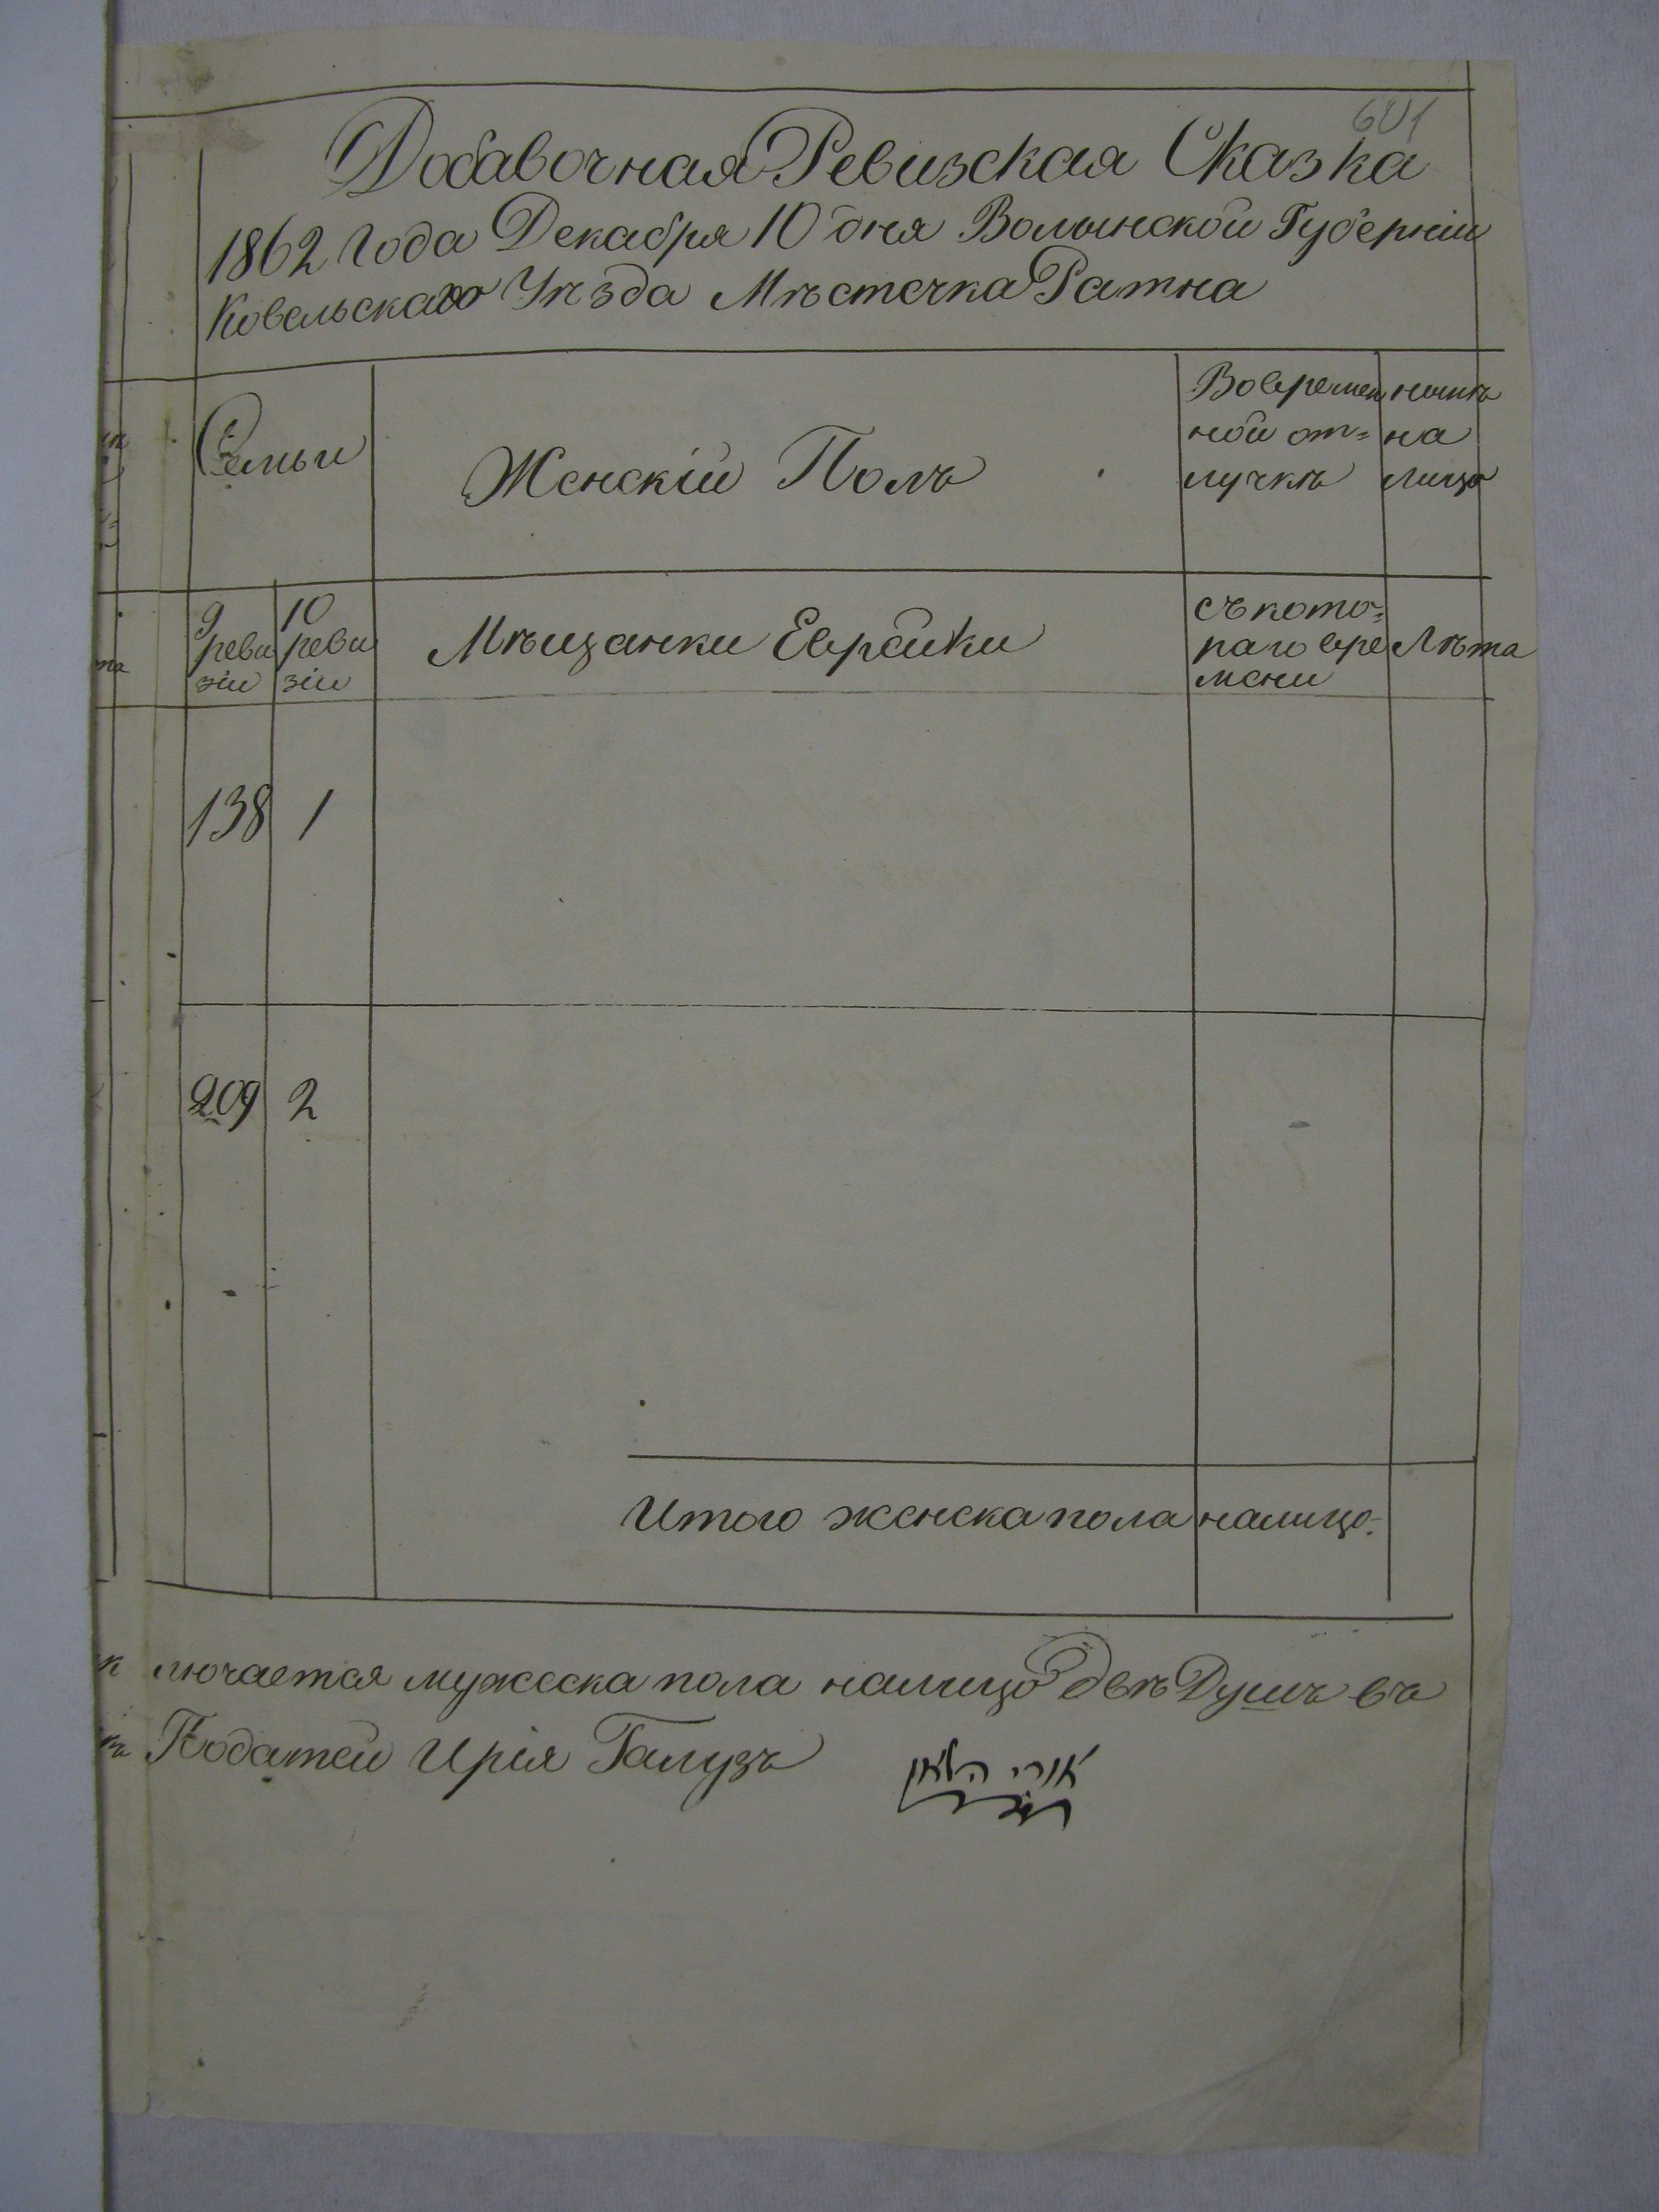 601
Добавочная Ревизская Сказка
1862 года Декабря 10 дня Волынской Губернiи
Ковельскаго Уѣзда Мѣстечка Ратна
Семьи
Женскiй Полъ
Во времен
ной от=
лучкѣ
нынѣ
на
лицо
9
реви
зiи
10
реви
зiи
Мѣщанки Еврейки
съ кото=
раго вре
мени
Лѣта
138 1
209 2
Итого женска пола налицо.
лючается мужеска пола налицо двѣ Душъ въ
Податей Ирiя Галузъ
אורי